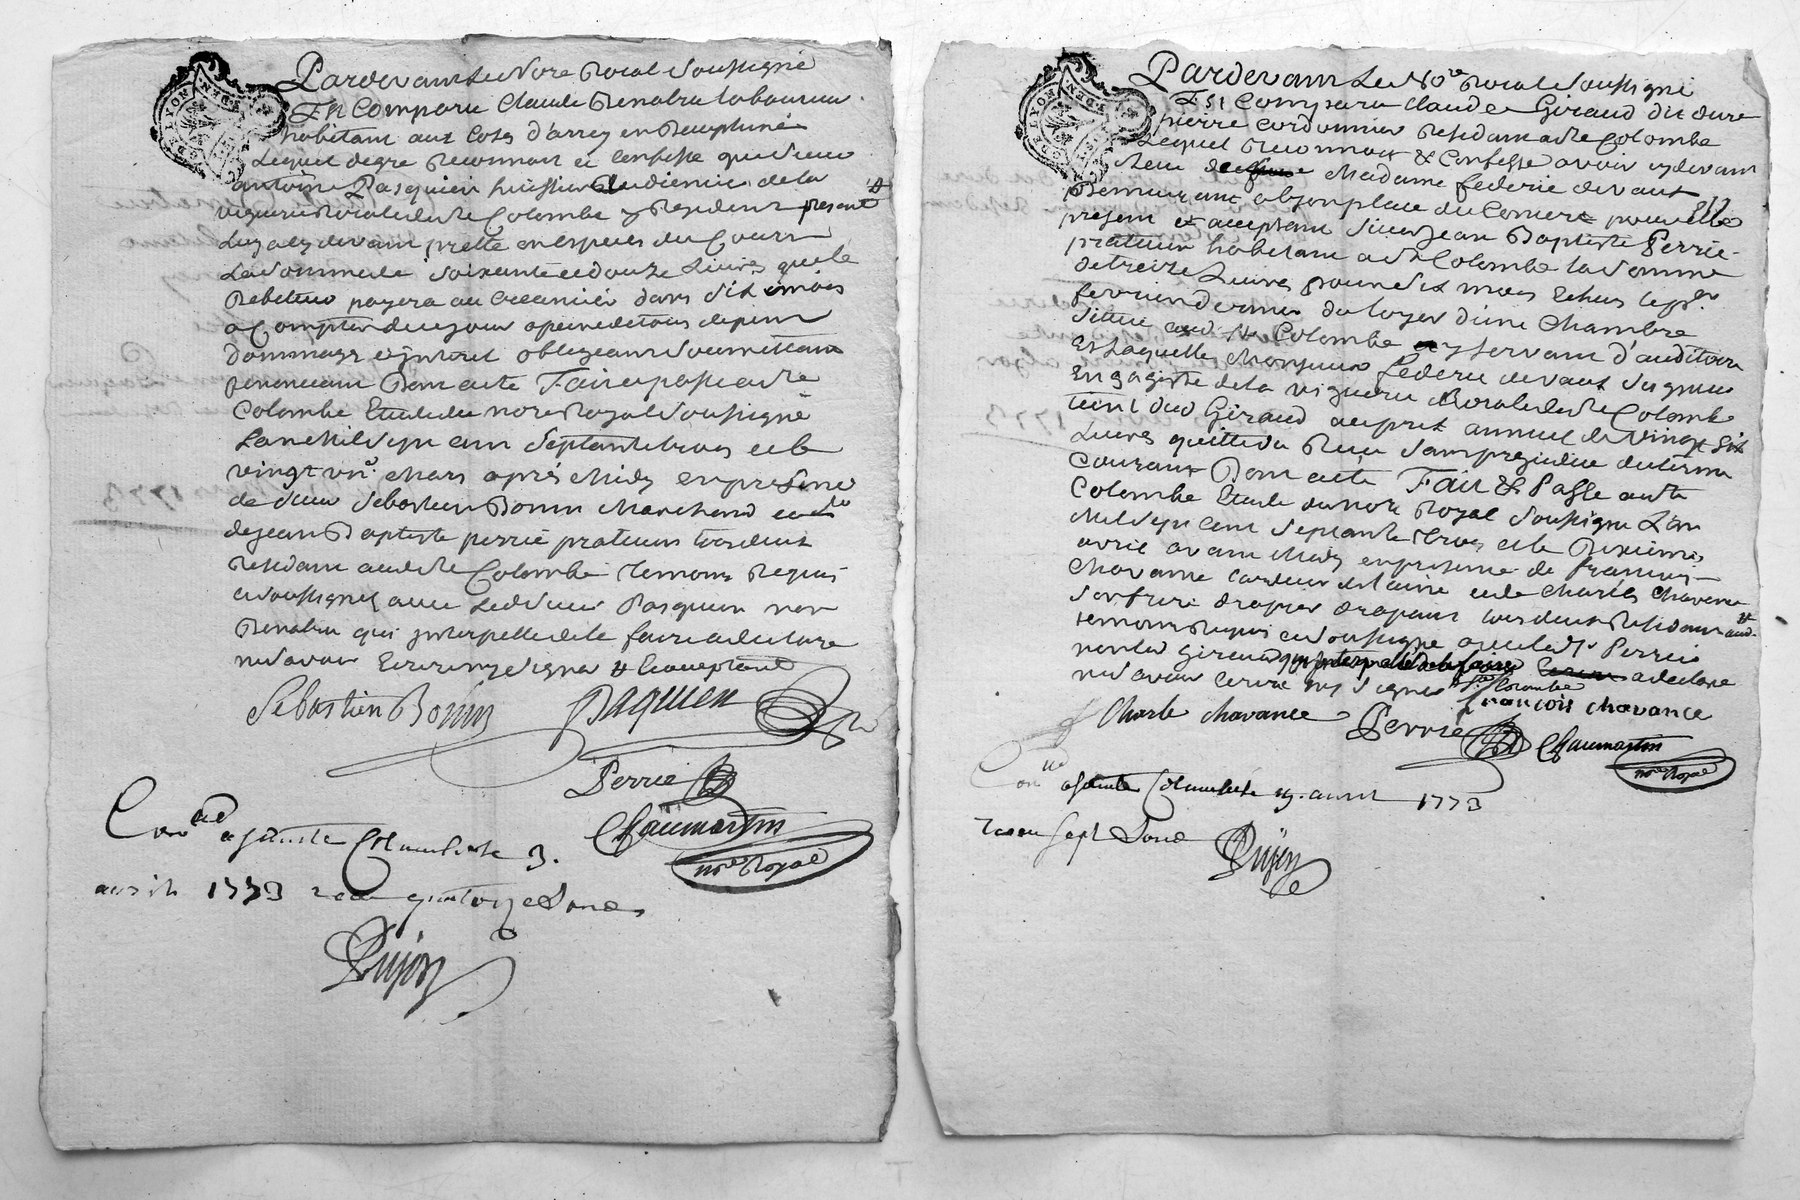 GEN. DE LYON
Pardevant Le Nore Roial Soussigné
Est Comparu Claude Renabru laboureur
habitant aux Cotes d'arrey en Dauphiné
Lequel de gré Reconnait et Confesse que Sieur
antoine Pasquier huissier Audiencier de la
viguerie Roiale de Ste Colombe y Resident present #
Luy a cy devant prette en Especes du Cours
La Somme de Soixante et douze Livres que le
Debiteur payera au Creancier dans Six mois
a Compter de ce jour a peine de tous depens
Dommages et interet obligeant Soumettant
Renoncant Dont acte Fait et passé a Ste
Colombe Etude du nore Royal Soussigné
L'an Mil Sept cent Septante trois et le
vingt un Mars aprés Midy en presence
de Sieur Sebastien Bonin Marchand et de
de jean Baptiste perrié praticien tous deux
Residant au dit Ste Colombe temoins Requis
et Soussignés avec Ledit Sieur Pasquier non
Renabru qui interpellé de le faire a declare
ne Savoir Ecrire ny Signer # l'acceptant
Sebastien Bonin Paquier
Perrié
Chaumartin
nore Royal
Conlé a Sainte Colombe le 3.
avril 1773 recu quatorze Sous
Dujon
GEN. DE LYON
Pardevant Le Nore Roial Soussigné
Est Comparu Claude Giraud dit dure
pierre Cordonnier Residant a Ste Colombe
Lequel Reconnait & Confesse avoir cy devant
Receu de Madame federic devaux
Demeurant a Lyon place du Comerce pour elle
present et acceptant Sieur Jean Baptiste Perrié
praticien habitant a Ste Colombe la Somme
de treize Livres pour Six mois Echus le pr
fevrier dernier du loyer d'une Chambre
Situé aud. Ste Colombe y Servant d'auditoire
Et Laquelle Monsieur federic devaux Seigneur
Engagiste de la viguerie Roiale de Ste Colombe
tient dud Giraud au prix annuel de Vingt Six
Livres quitte du Recu Sans prejudice du terme
Courant Dont acte Fait & Passé a Ste
Colombe Etude du nore Royal Soussigné L'an
Mil Sept cent Septante trois et le Dixieme
avril avant Midy en presence de francois
Chavance Cardeur de Laine et de Charles Chavance
Son frere drapier drapant tous deux Residant aud. #
temoins Requis et Soussignés avec led Sr Perrié
non led Giraud qui interpellé de le faire a declare
ne Savoir Ecrire ny Signer # Ste Colombe
francois chavance
Charle chavance Perrié
Chaumartin
nore Royal
Conlé a Sainte Colombe le 19. avril 1773
recu Sept Sous
Dujon